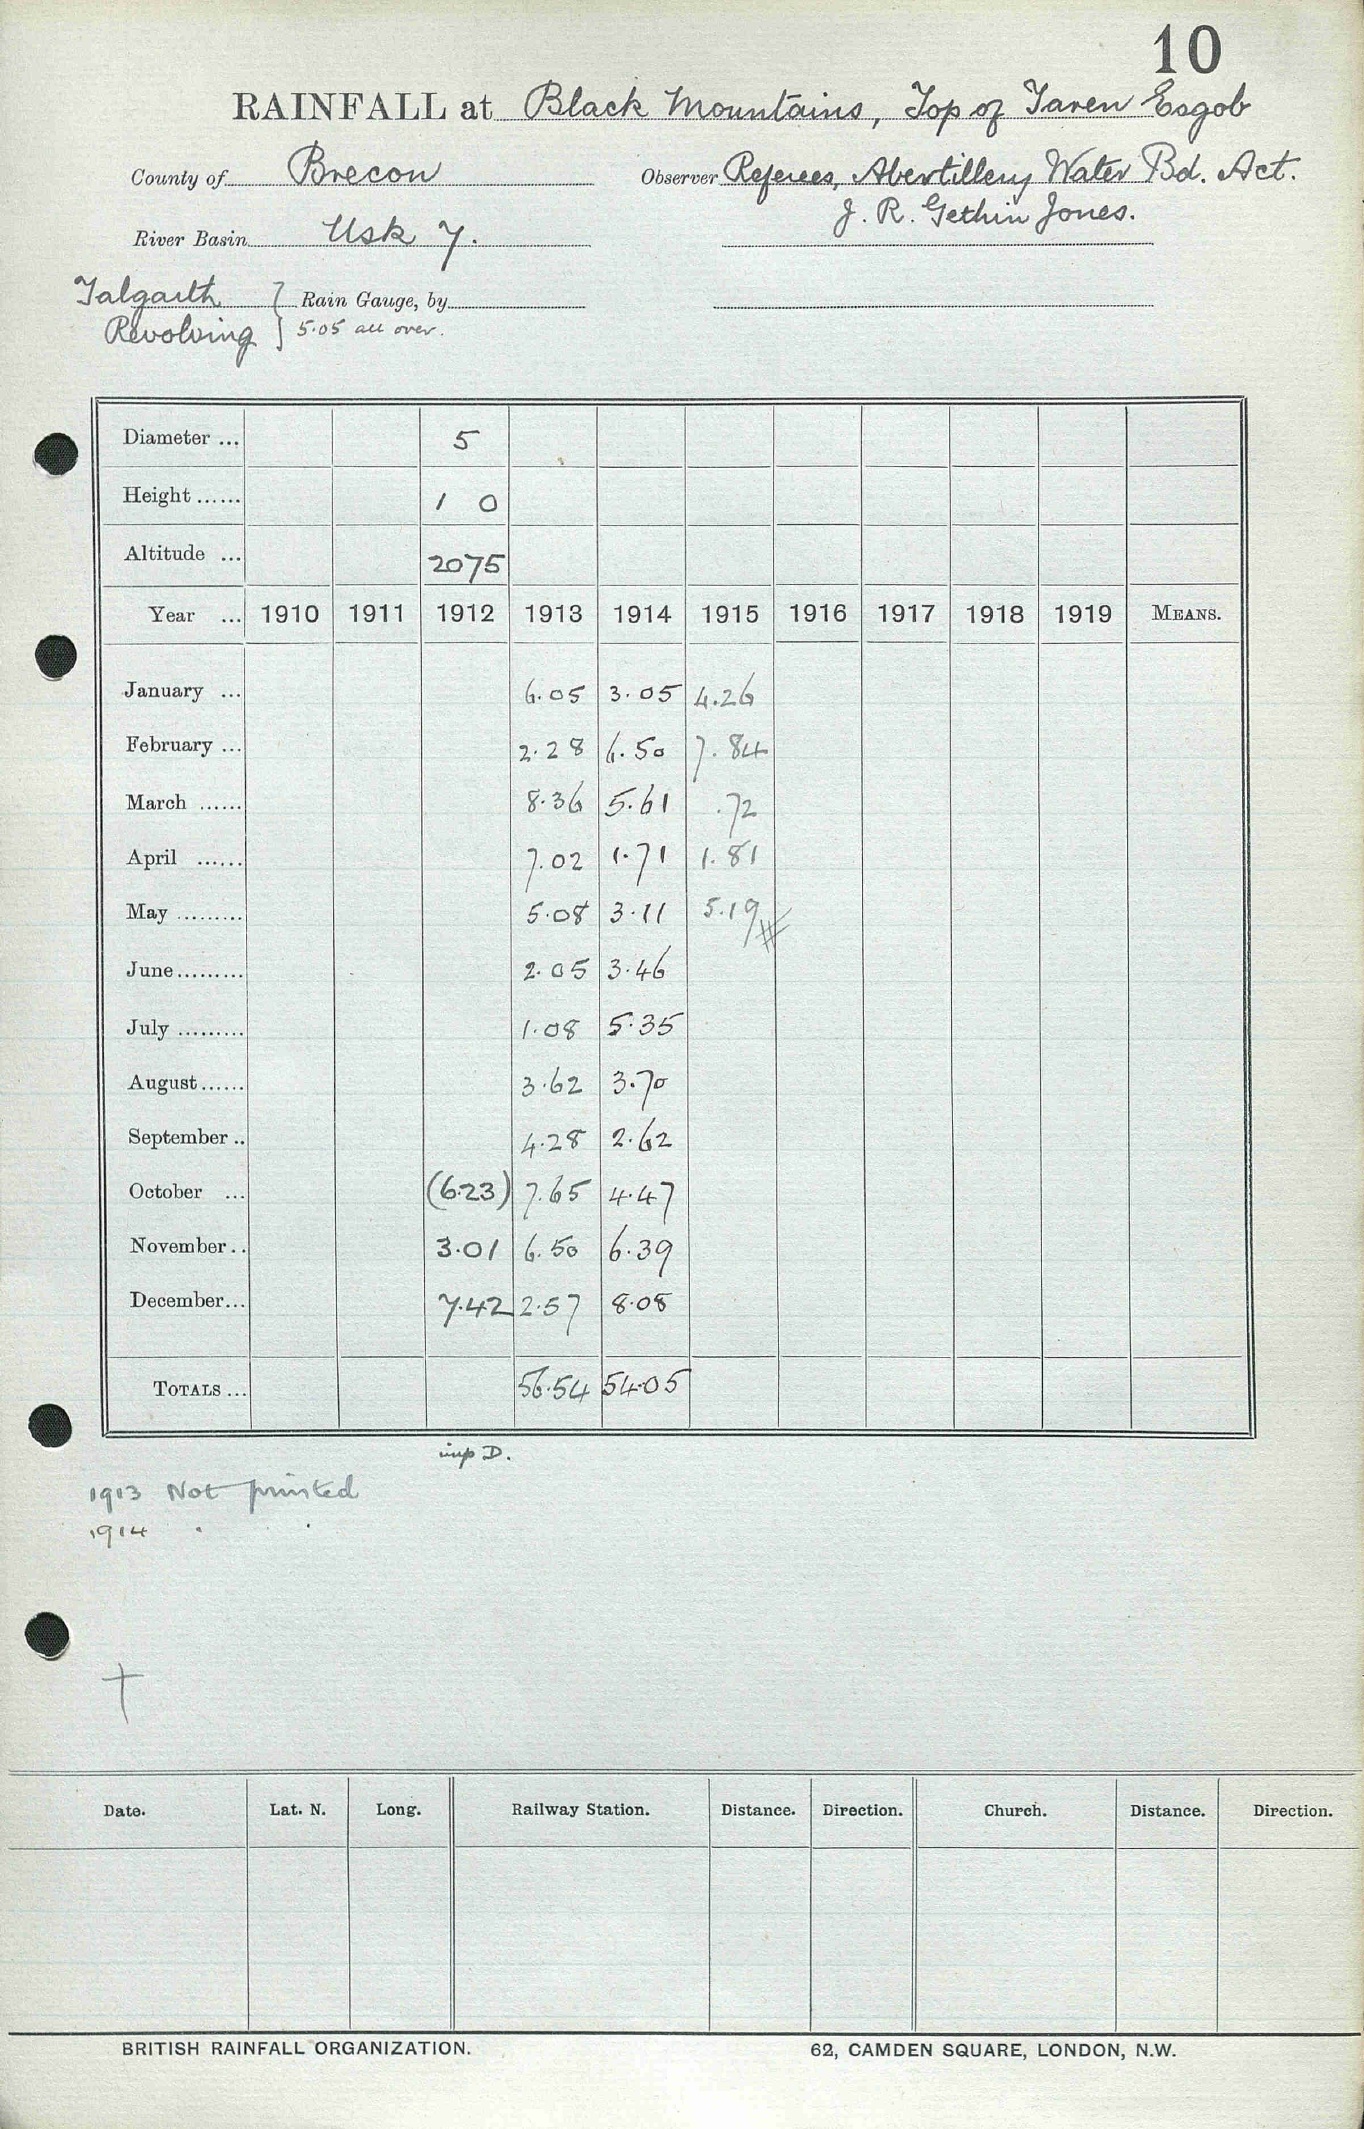 10
RAINFALL at Black Mountains, Top of Taren Esgob
County of Brecon Observer Referees, Abertillery Water Bd. Act.
River Basin Usk 7. J. R. Gethin Jones.
Talgarth } Rain Gauge, by
Revolving } 5.05 all over.
Diameter ... 5
Height ...... 1 0
Altitude ... 2075
Year ... 1910 1911 1912 1913 1914 1915 1916 1917 1918 1919 MEANS.
January ... 6.05 3.05 4.26
February ... 2.28 6.50 7.84
March ...... 8.36 5.61 .72
April ...... 7.02 1.71 1.81
May ......... 5.08 3.11 5.19 #
June......... 2.05 3.46
July ......... 1.08 5.35
August...... 3.62 3.70
September .. 4.28 2.62
October ... (6.23) 7.65 4.47
November.. 3.01 6.50 6.39
December... 7.42 2.57 8.08
TOTALS ... 56.54 54.05
imp D.
1913 Not printed
1914 . .
Date. Lat. N. Long. Railway Station. Distance. Direction. Church. Distance. Direction.
BRITISH RAINFALL ORGANIZATION. 62, CAMDEN SQUARE, LONDON, N.W.